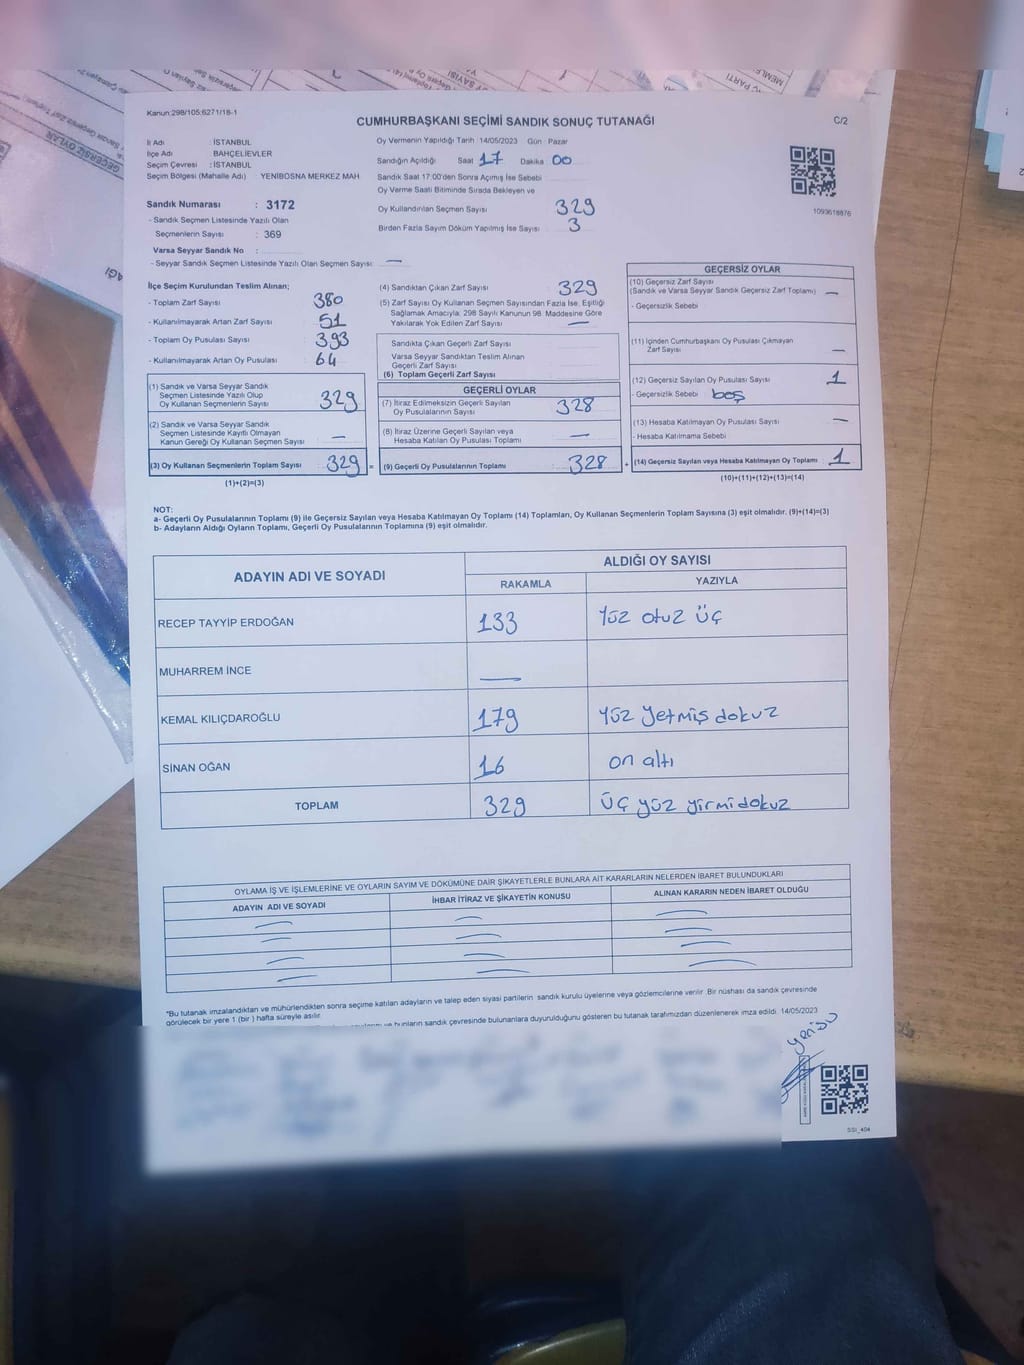 Kanun:298/105;6271/18-1
CUMHURBAŞKANI SEÇİMİ SANDIK SONUÇ TUTANAĞI
C/2
İl Adı : İSTANBUL
İlçe Adı : BAHÇELİEVLER
Seçim Çevresi : İSTANBUL
Seçim Bölgesi (Mahalle Adı) : YENİBOSNA MERKEZ MAH
Sandık Numarası : 3172
- Sandık Seçmen Listesinde Yazılı Olan
Seçmenlerin Sayısı : 369
Varsa Seyyar Sandık No :
- Seyyar Sandık Seçmen Listesinde Yazılı Olan Seçmen Sayısı: —
Oy Vermenin Yapıldığı Tarih : 14/05/2023 Gün : Pazar
Sandığın Açıldığı Saat 17 Dakika 00
Sandık Saat 17:00'den Sonra Açılmış İse Sebebi
Oy Verme Saati Bitiminde Sırada Bekleyen ve
Oy Kullandırılan Seçmen Sayısı 329
Birden Fazla Sayım Döküm Yapılmış İse Sayısı 3
1093618876
İlçe Seçim Kurulundan Teslim Alınan;
- Toplam Zarf Sayısı 380
- Kullanılmayarak Artan Zarf Sayısı 51
- Toplam Oy Pusulası Sayısı 393
- Kullanılmayarak Artan Oy Pusulası 64
(1) Sandık ve Varsa Seyyar Sandık
Seçmen Listesinde Yazılı Olup
Oy Kullanan Seçmenlerin Sayısı 329
(2) Sandık ve Varsa Seyyar Sandık
Seçmen Listesinde Kayıtlı Olmayan
Kanun Gereği Oy Kullanan Seçmen Sayısı —
(3) Oy Kullanan Seçmenlerin Toplam Sayısı 329 =
(1)+(2)=(3)
(4) Sandıktan Çıkan Zarf Sayısı 329
(5) Zarf Sayısı Oy Kullanan Seçmen Sayısından Fazla İse, Eşitliği
Sağlamak Amacıyla; 298 Sayılı Kanunun 98. Maddesine Göre
Yakılarak Yok Edilen Zarf Sayısı —
Sandıkta Çıkan Geçerli Zarf Sayısı
Varsa Seyyar Sandıktan Teslim Alınan
Geçerli Zarf Sayısı
(6) Toplam Geçerli Zarf Sayısı
GEÇERLİ OYLAR
(7) İtiraz Edilmeksizin Geçerli Sayılan
Oy Pusulalarının Sayısı 328
(8) İtiraz Üzerine Geçerli Sayılan veya
Hesaba Katılan Oy Pusulası Toplamı —
(9) Geçerli Oy Pusulalarının Toplamı 328 +
GEÇERSİZ OYLAR
(10) Geçersiz Zarf Sayısı
(Sandık ve Varsa Seyyar Sandık Geçersiz Zarf Toplamı) —
- Geçersizlik Sebebi
(11) İçinden Cumhurbaşkanı Oy Pusulası Çıkmayan
Zarf Sayısı —
(12) Geçersiz Sayılan Oy Pusulası Sayısı 1
- Geçersizlik Sebebi boş
(13) Hesaba Katılmayan Oy Pusulası Sayısı —
- Hesaba Katılmama Sebebi
(14) Geçersiz Sayılan veya Hesaba Katılmayan Oy Toplamı 1
(10)+(11)+(12)+(13)=(14)
NOT:
a- Geçerli Oy Pusulalarının Toplamı (9) ile Geçersiz Sayılan veya Hesaba Katılmayan Oy Toplamı (14) Toplamları, Oy Kullanan Seçmenlerin Toplam Sayısına (3) eşit olmalıdır. (9)+(14)=(3)
b- Adayların Aldığı Oyların Toplamı, Geçerli Oy Pusulalarının Toplamına (9) eşit olmalıdır.
ADAYIN ADI VE SOYADI
ALDIĞI OY SAYISI
RAKAMLA YAZIYLA
RECEP TAYYİP ERDOĞAN 133 Yüz otuz üç
MUHARREM İNCE —
KEMAL KILIÇDAROĞLU 179 Yüz Yetmiş dokuz
SİNAN OĞAN 16 on altı
TOPLAM 329 üç yüz yirmidokuz
OYLAMA İŞ VE İŞLEMLERİNE VE OYLARIN SAYIM VE DÖKÜMÜNE DAİR ŞİKAYETLERLE BUNLARA AİT KARARLARIN NELERDEN İBARET BULUNDUKLARI
ADAYIN ADI VE SOYADI İHBAR İTİRAZ VE ŞİKAYETİN KONUSU ALINAN KARARIN NEDEN İBARET OLDUĞU
"Bu tutanak imzalandıktan ve mühürlendikten sonra seçime katılan adayların ve talep eden siyasi partilerin sandık kurulu üyelerine veya gözlemcilerine verilir. Bir nüshası da sandık çevresinde
görülecek bir yere 1 (bir) hafta süreyle asılır.
ve bunların sandık çevresinde bulunanlara duyurulduğunu gösteren bu tutanak tarafımızdan düzenlenerek imza edildi. 14/05/2023
SSI_404